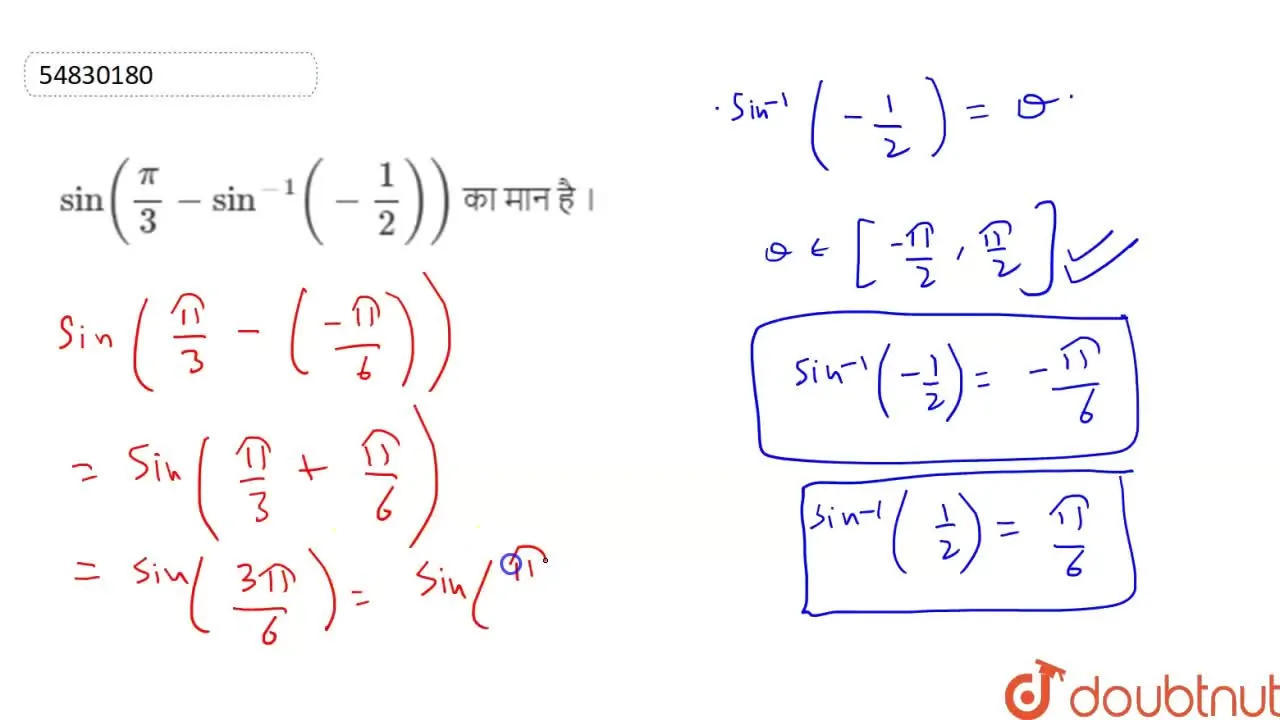 54830180
sin(π/3 − sin⁻¹(−1/2)) का मान है ।
Sin(π/3 − (−π/6))
= Sin(π/3 + π/6)
= Sin(3π/6) = Sin(π
. Sin⁻¹(−1/2) = θ .
θ ∈ [−π/2, π/2] ✓✓
Sin⁻¹(−1/2) = −π/6
Sin⁻¹(1/2) = π/6
doubtnut